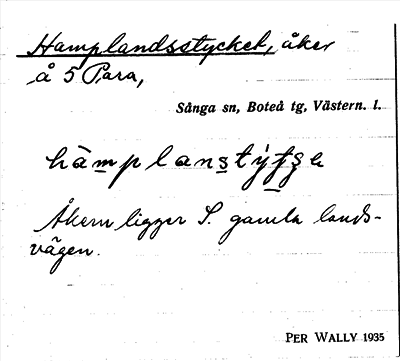 Hamplandsstycket, åker
å 5 Para,
Sånga sn, Boteå tg, Västern. l.
Åkern ligger S. gamla lands-
vägen.
PER WALLY 1935